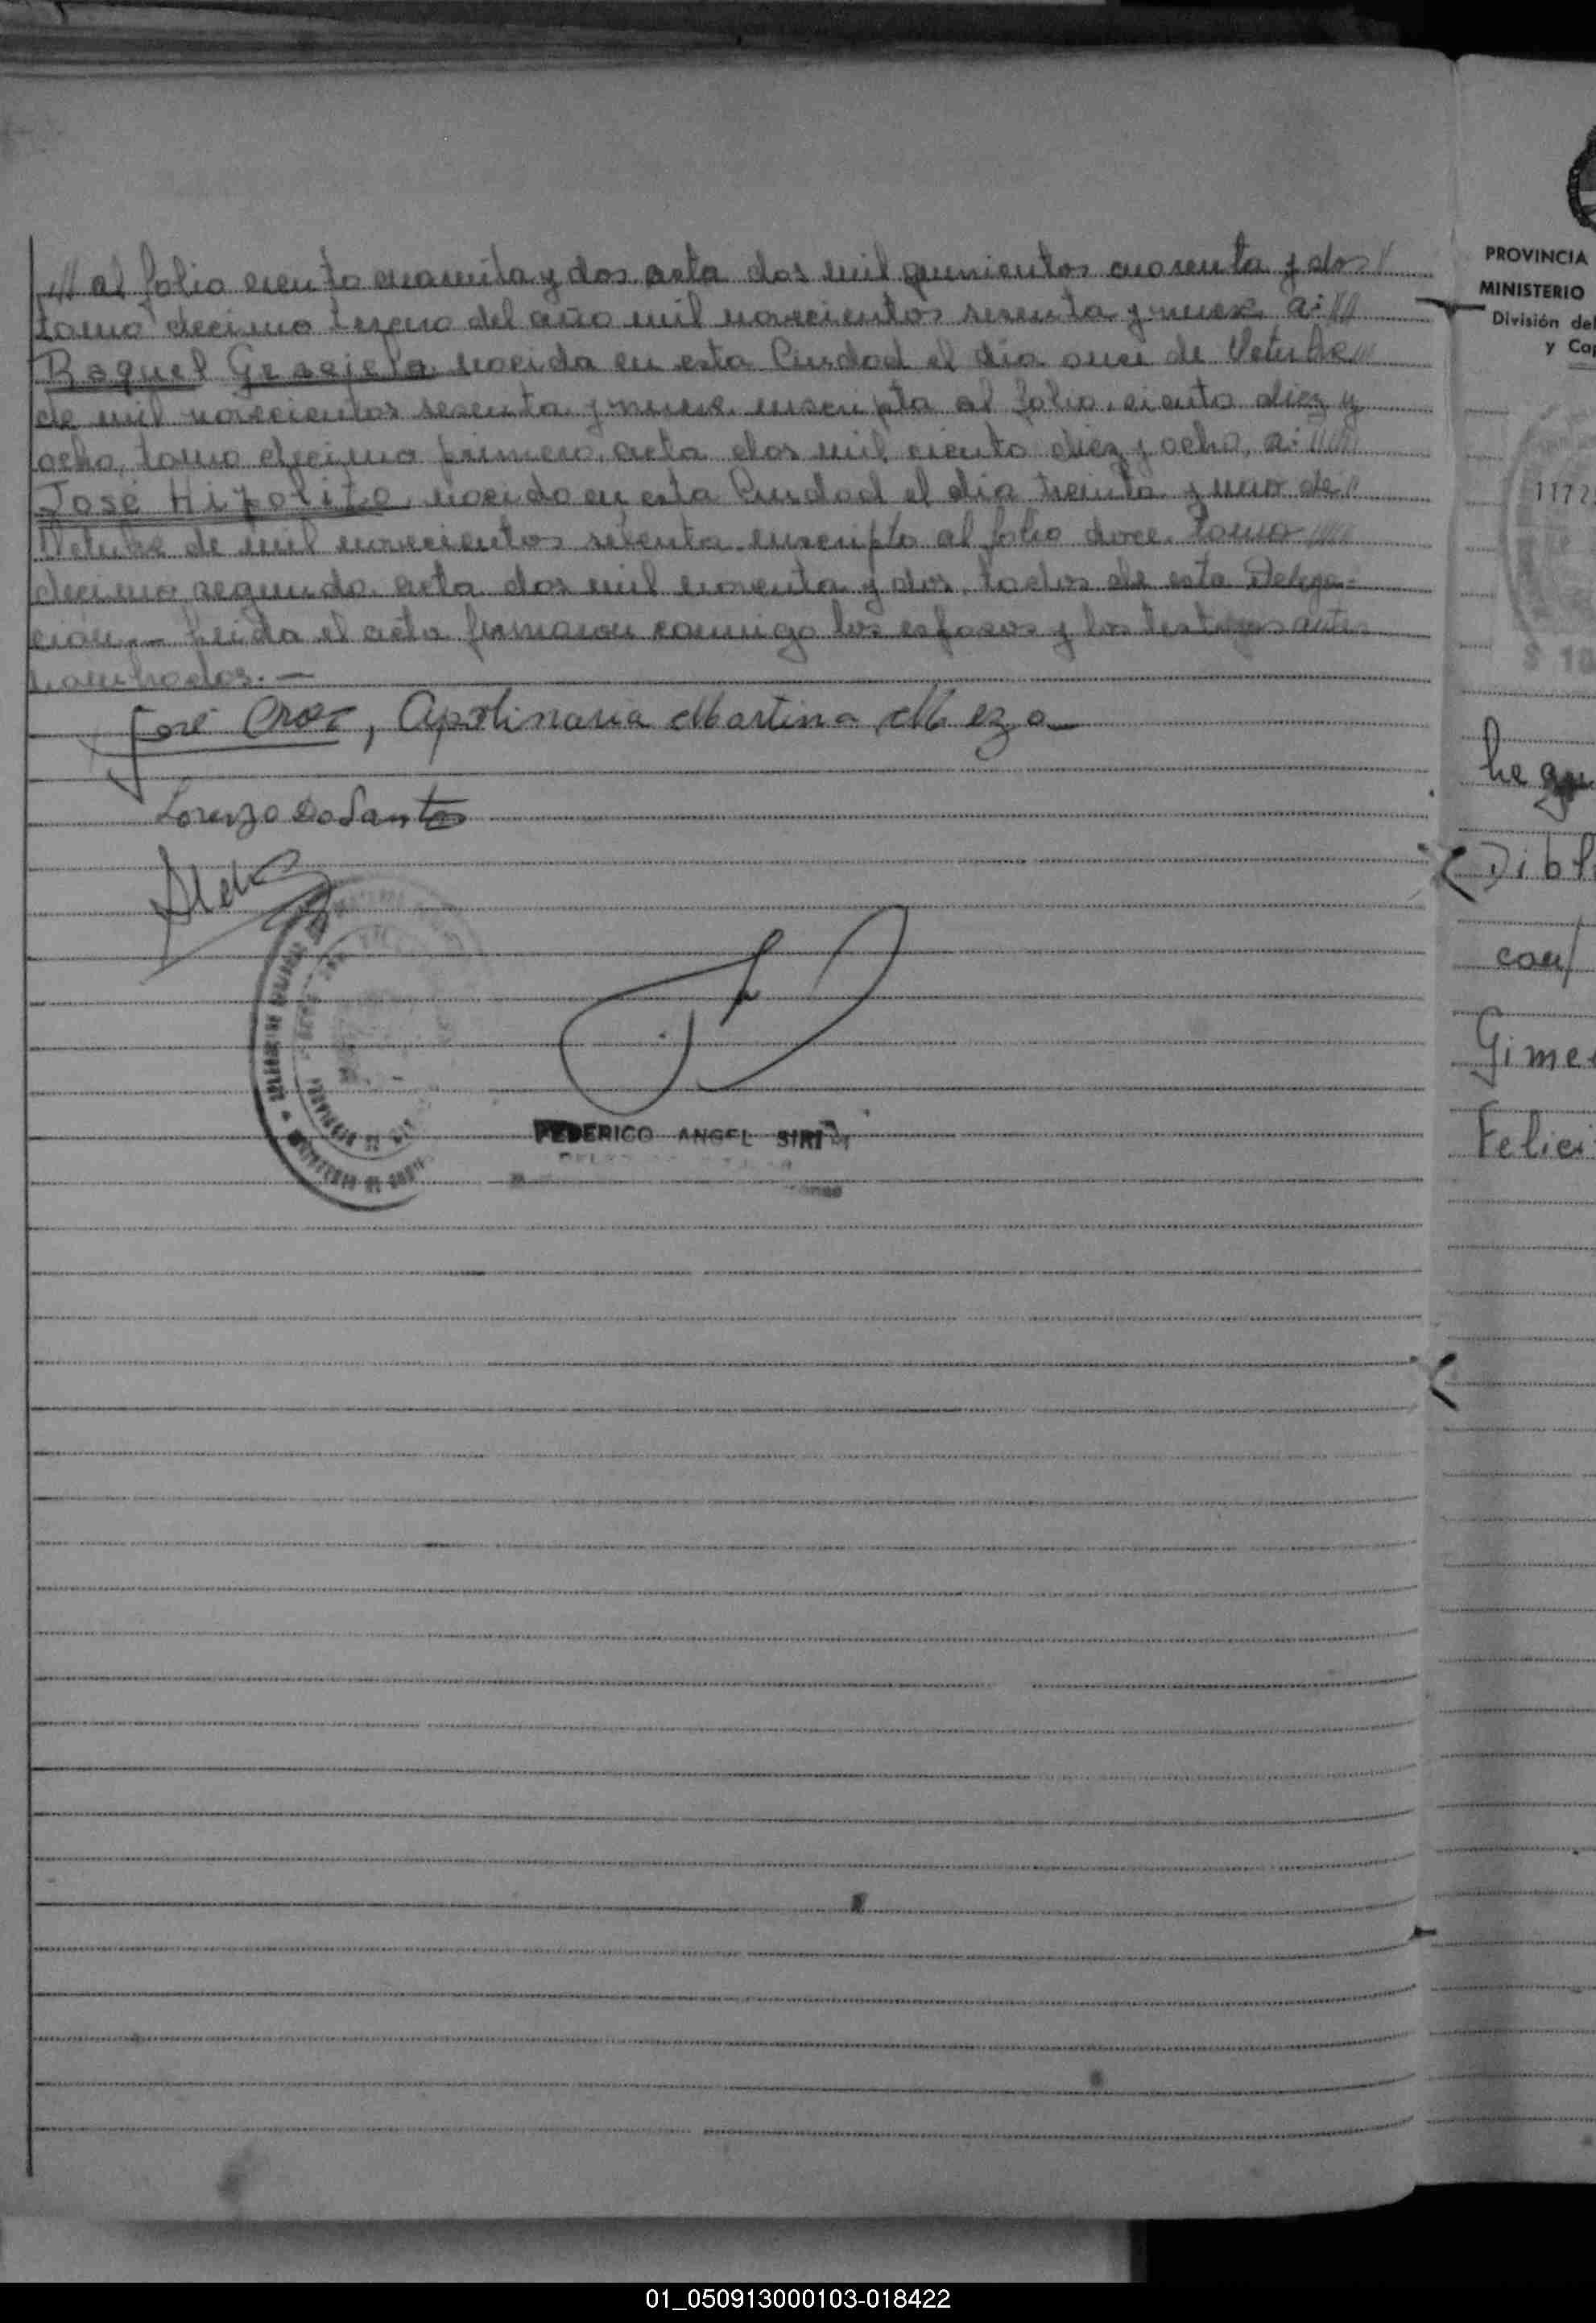 /// al folio ciento cuarenta y dos acta dos mil quinientos cuarenta y dos /
tomo decimo tercero del año mil novecientos sesenta y nueve a: ///
Raquel Graciela nacida en esta Ciudad el día once de Octubre ///
de mil novecientos sesenta y nueve inscripta al folio ciento diez y
ocho, tomo decimo primero, acta dos mil ciento diez y ocho, a: ////
José Hipolito, nacido en esta Ciudad el día treinta y uno de //
Octubre de mil novecientos setenta inscripto al folio doce, tomo ////
decimo segundo, acta dos mil noventa y dos, todos de esta Delega=
ción.— Leida el acta firmaron conmigo los esposos y los testigos antes
nombrados.—
José , Apolinaria Martina Meza
Lorenzo Do Santos
FEDERICO ANGEL SIRI
PROVINCIA
MINISTERIO
División del
y Ca
1172
$ 10
con/
Gime
Felici
01_050913000103-018422